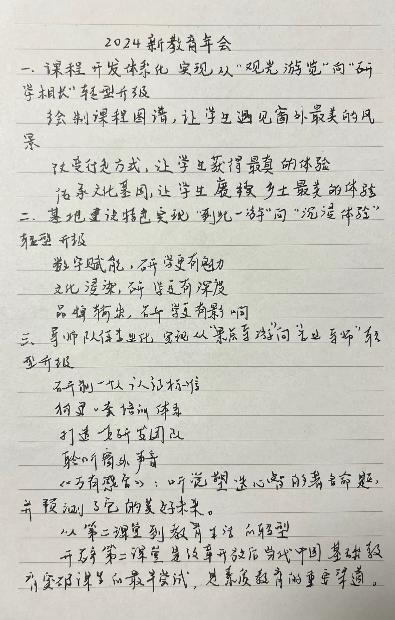 2024新教育年会
一、课程开发体系化 实现从“观光游览”向“研
学相长”转型升级
绘制课程图谱，让学生遇见窗外最美的风
景
改变行走方式，让学生获得最真的体验
传承文化基因，让学生展 乡土最美的体验
二、基地建设特色实现“到此一游”向“沉浸体验”
转型升级
数字赋能，研学更有魅力
文化浸染，研学更有深度
品牌输出，研学更有影响
三、导师队伍专业化 实现从“景点导游”向“专业导师”转
型升级
研制一 认证标准
构建一套培训体系
打造 研发团队
聆听窗外声音
《万有 》：听说塑造心智的著名命题，
并预测了它的美好未来。
从第二课堂到教育生活的转型
开辟第二课堂是改革开放后当代中国基础教
育变革课堂的最早尝试，是素质教育的重要渠道。